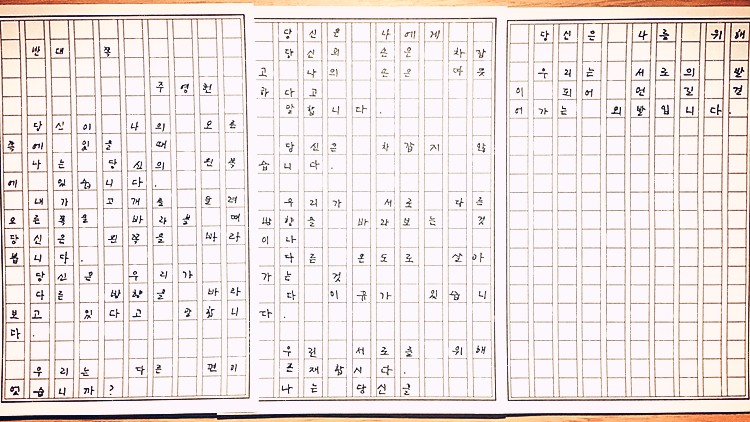 반대 쪽
주영헌
당신이 나의 오른
쪽에 있을 때
나는 당신의 왼쪽
에 있습니다.
내가 고개를 돌려
오른쪽을 바라볼 때
당신은 왼쪽을 바라
봅니다.
당신은 우리가
다른 방향을 바라
보고 있다고 말합니
다.
우리는 다른 편이
었습니까?
당신은 나에게
당신의 손은 차갑
고 나의 손은 따뜻
하다고
말합니다.
당신은 차갑지 않
습니다.
우리가 서로 다른
방향을 바라보는 것
이나
다른 온도로 살아
가는 것
다 이유가 있습니
다.
우린 서로를 위해
존재합시다.
나는 당신을
당신은 나를 위해
우리는 서로의 발
이 되어 먼 길 걸
어가는 외발입니다.